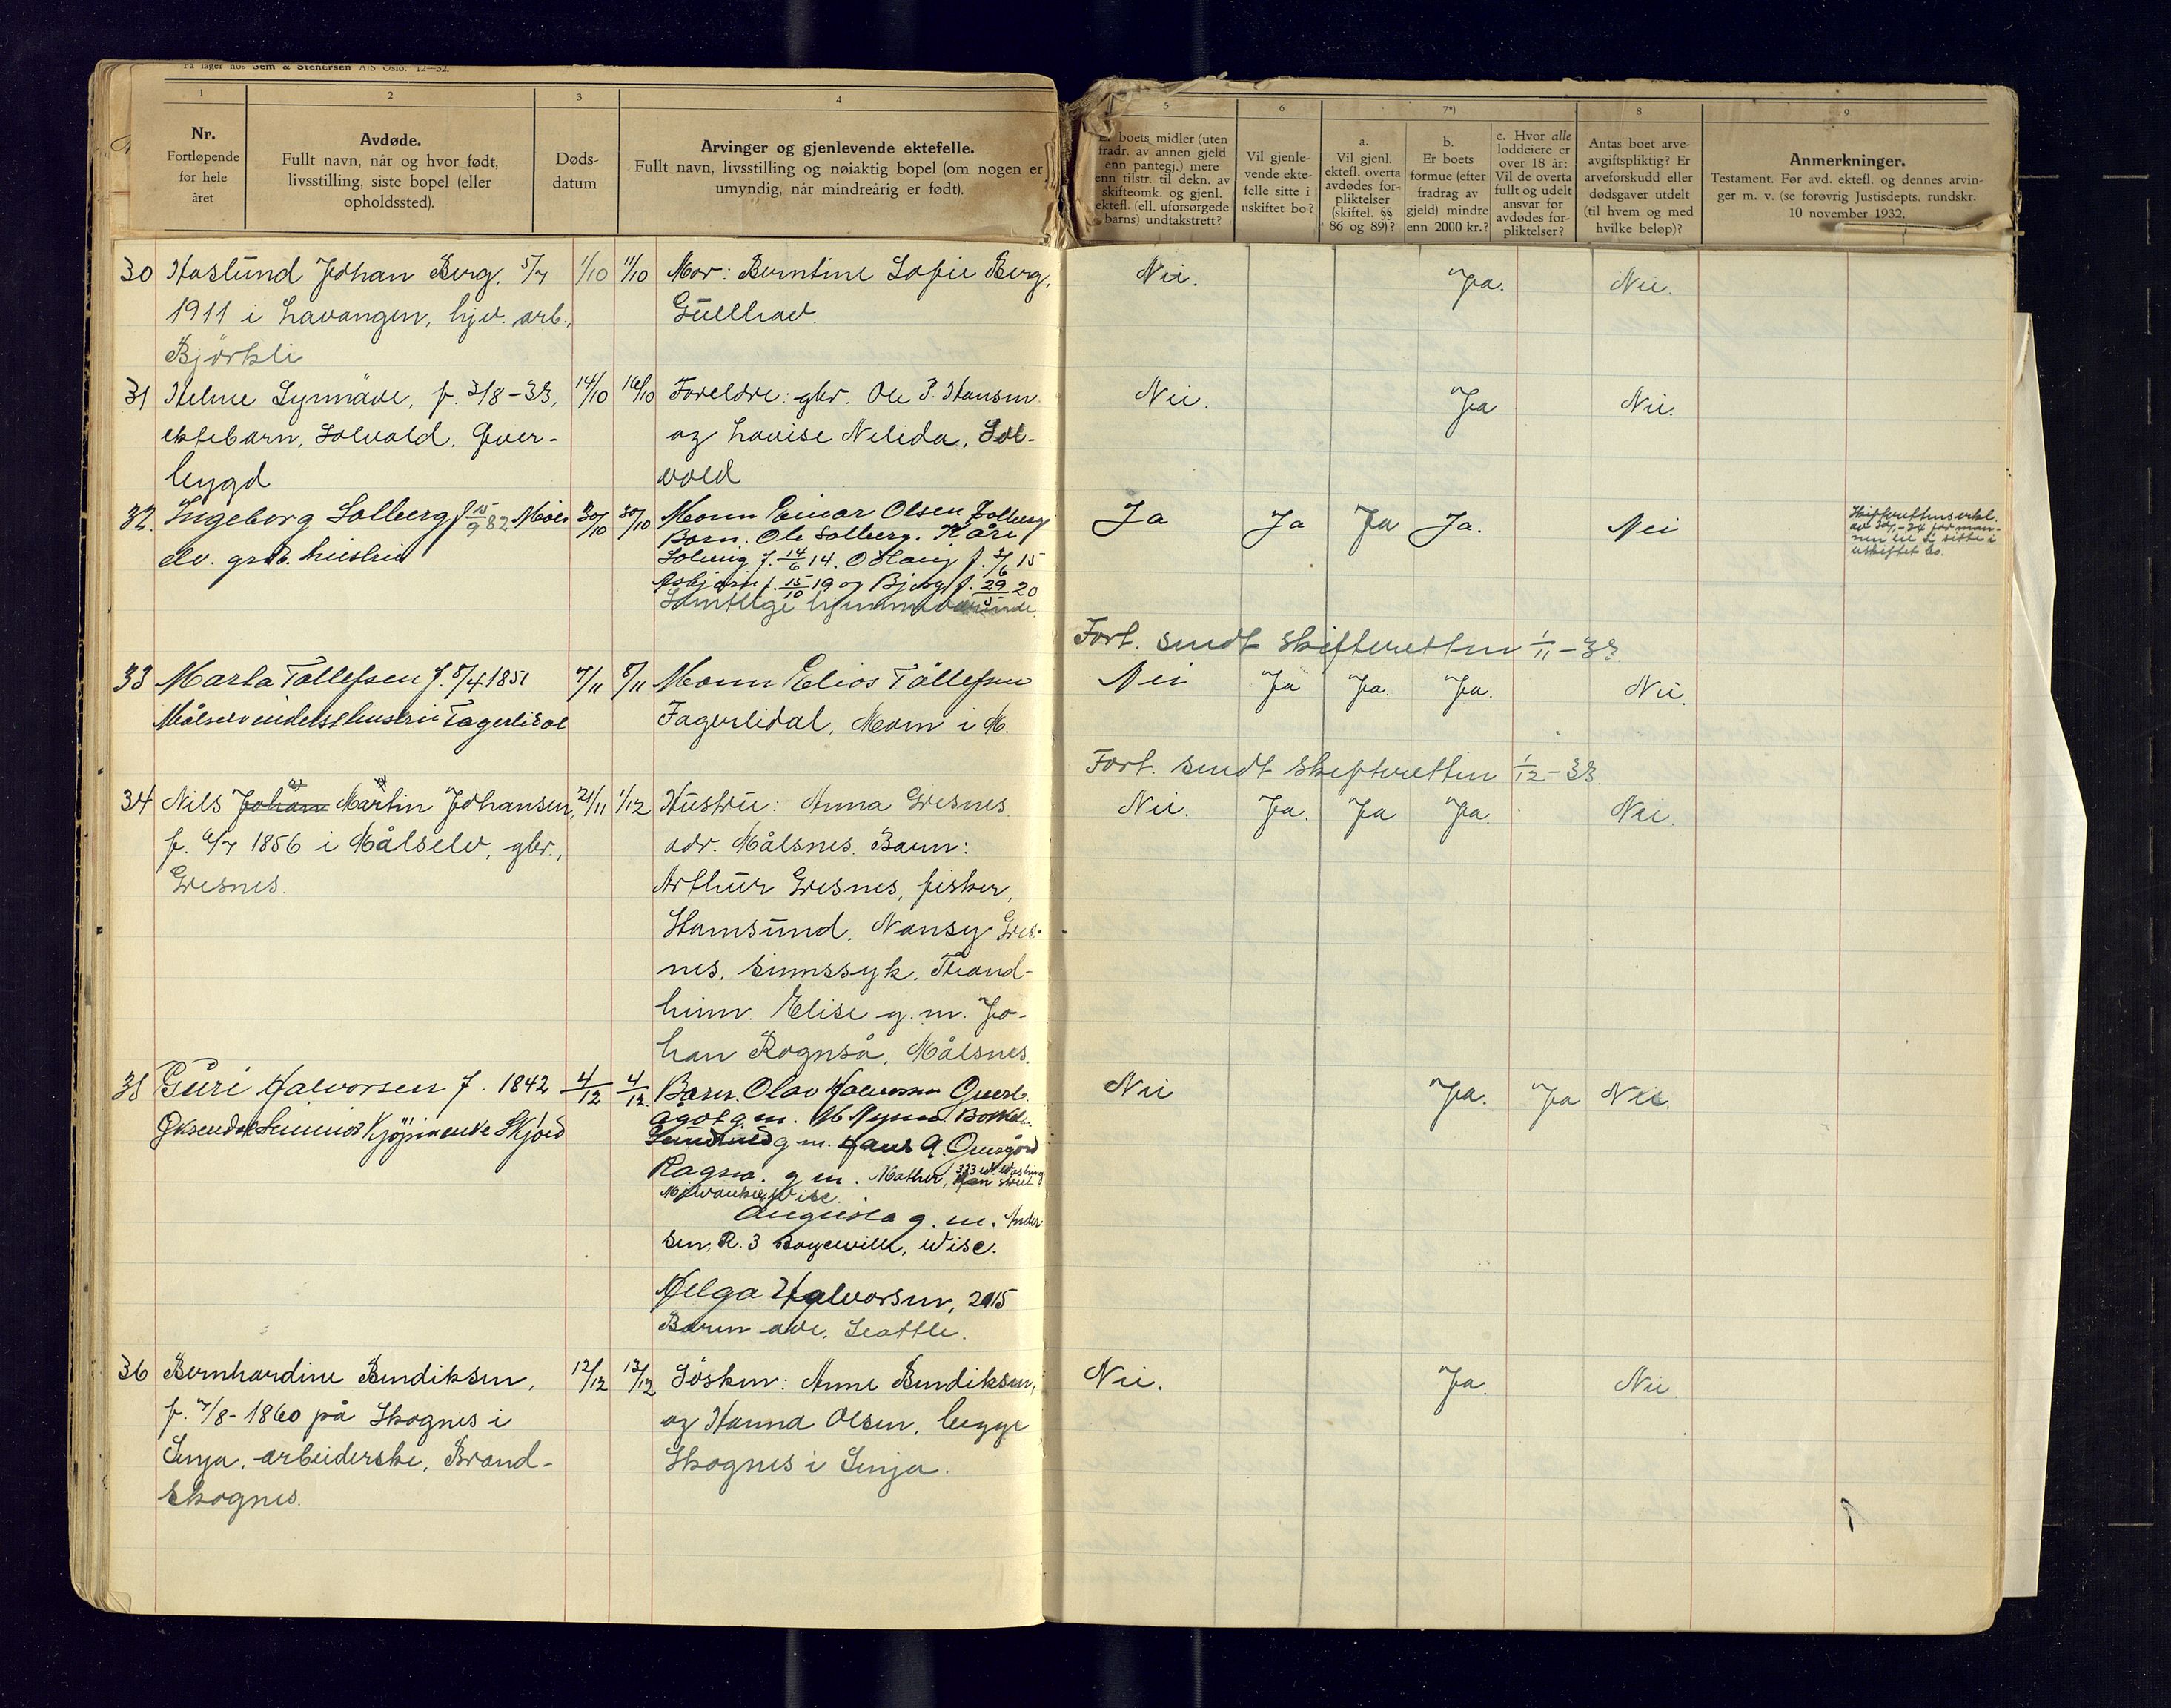 På lager hos Sem & Stenersen A/S Oslo. 12—32.
1 2 3 4 5 6 7*) 8 9
Nr.
Fortløpende
for hele
året
Avdøde.
Fullt navn, når og hvor født,
livsstilling, siste bopel (eller
opholdssted).
Døds-
datum
Arvinger og gjenlevende ektefelle.
Fullt navn, livsstilling og nøiaktig bopel (om nogen er
umyndig, når mindreårig er født).
boets midler (uten
fradr. av annen gjeld
enn pantegj.) mere
enn tilstr. til dekn. av
skifteomk. og gjenl.
ektefl. (ell. uforsørgede
barns) undtakstrett?
Vil gjenle-
vende ekte-
felle sitte i
uskiftet bo?
a.
Vil gjenl.
ektefl. overta
avdødes for-
pliktelser
(skiftel. §§
86 og 89)?
b.
Er boets
formue (efter
fradrag av
gjeld) mindre
enn 2000 kr.?
c. Hvor alle
loddeiere er
over 18 år:
Vil de overta
fullt og udelt
ansvar for
avdødes for-
pliktelser?
Antas boet arve-
avgiftspliktig? Er
arveforskudd eller
dødsgaver utdelt
(til hvem og med
hvilke beløp)?
Anmerkninger.
Testament. Før avd. ektefl. og dennes arvin-
ger m. v. (se forøvrig Justisdepts. rundskr.
10 november 1932.
30 Haslund Johan Berg, 5/7 1/10 11/10 Mor: Berntine Sofie Berg, Nei. Ja. Nei.
1911 i Lavangen, hjv. arb., Gullhav.
Björkli
31 Helme Synnöve, f. 3/8-33, 14/10 16/10 Foreldre: gbr. Ole P. Hansen Nei. Ja Nei.
ektebarn, Solvold, Øver- og Lovise Nelida, Sol-
bygd vold
32. Ingeborg Solberg f 15/9 82 Måls 30/10 30/10 Mann Einar Olsen Solberg Ja Ja Ja Ja. Nei
elv. grdb. hustru Barn. Ole Solberg. Kåre
Solveig f. 14/6 14. O Haig f. 3/6 15
Asbjørn f. 15/10 19 og Bjarg f. 29/5 20
Samtlige hjemmeværende
Skifterettens erkl.
av 30/1-34 for man-
nen til å sitte i
uskiftet bo.
Fort. sendt skifteretten 1/11-33.
33 Marta Tollefsen f. 5/4 1851 7/11 8/11 Mann Elias Tollefsen Nei Ja Ja. Ja. Nei.
Målselv inderst hustru Fagerlidal Fagerlidal, Moen i M.
Fort. sendt skifteretten 1/12-33.
34 Nils Johan Martin Johansen, 21/11 1/12 Hustru: Anna Gresnes Nei. Ja. Ja Ja. Nei.
f. 6/7 1856 i Målselv, gbr., adr. Målsnes. Barn:
Gresnes. Arthur Gresnes, fisker,
Stamsund. Nansy Gres-
nes, sinnssyk, Trond-
heim. Elise g.m. Jo-
han Rognså, Målsnes.
35 Guri Halvorsen f. 1842 4/12 4/12. Barn. Olav Halvorsen Øverb. Nei Ja. Ja Nei.
Øksendal Kjøpmenke Skjold Ågot g m.
Gunhild g m. Hans A.
Ragna. g m. Mather, 333 W. Washing
Milwaukee, Wisc.
Augusta g. m. Ander-
sen, R. 3 Wisc.
Helga Halvorsen, 2915
ave, Seattle.
36 Bernhardine Bendiksen, 12/12 13/12 Søsken: Anne Bendiksen, Nei. Ja. Nei
f. 7/8-1860 på Skognes i og Hanna Olsen, begge
Senja, arbeiderske, Brand- Skognes i Senja.
skognes.